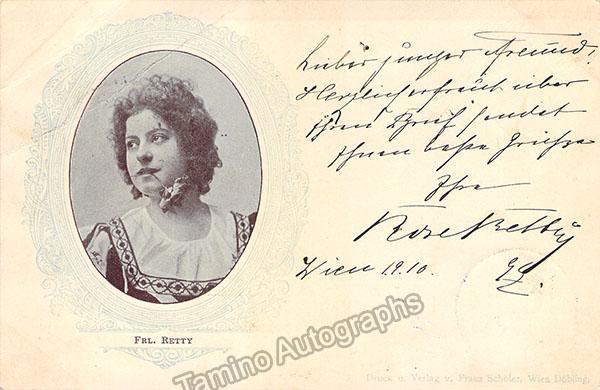 Lieber junger Freund!
Herzlich erfreut über
Ihren Brief sendet
Ihnen beste Grüsse
Ihre
Rosa Retty
Wien 19.10. 98.
FRL. RETTY
Druck u. Verlag v. Franz Schöler, Wien Döbling.
Tamino Autographs